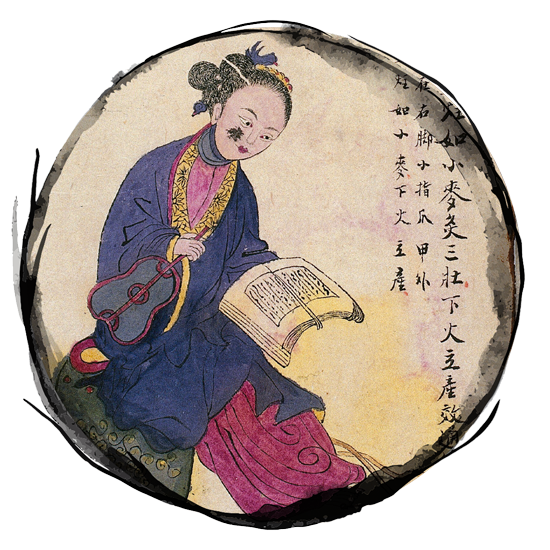 炷如小麥灸三壯下火立產效通
在右脚小指爪甲外
炷如小麥下火立產